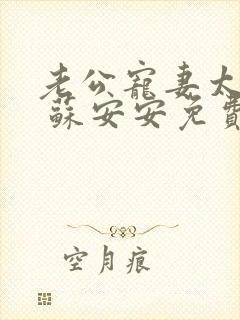 老公寵妻太
蘇安安免費
空月痕